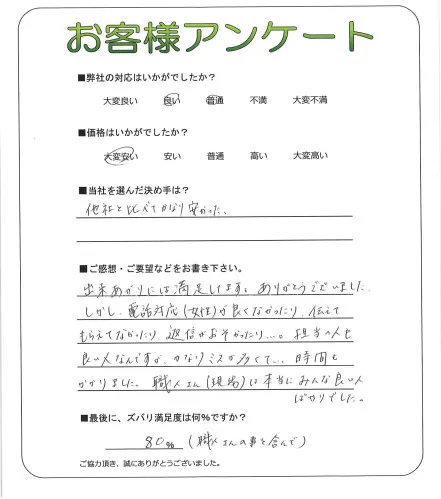 お客様アンケート
■弊社の対応はいかがでしたか?
大変良い 良い 普通 不満 大変不満
■価格はいかがでしたか?
大変安い 安い 普通 高い 大変高い
■当社を選んだ決め手は?
他社と比べてかなり安かった、
■ご感想・ご要望などをお書き下さい。
出来あがりには満足してます。ありがとうございました。
しかし、電話対応(女性)が良くなかったり、伝えて
もらえてなかったり、返信がおそかったり…。担当の人も
良い人なんですが、かなりミスが多くて…、時間も
かかりました。職人さん(現場)は本当にみんな良い人
ばかりでした。
■最後に、ズバリ満足度は何%ですか?
80% (職人さんの事も含んで)
ご協力頂き、誠にありがとうございました。